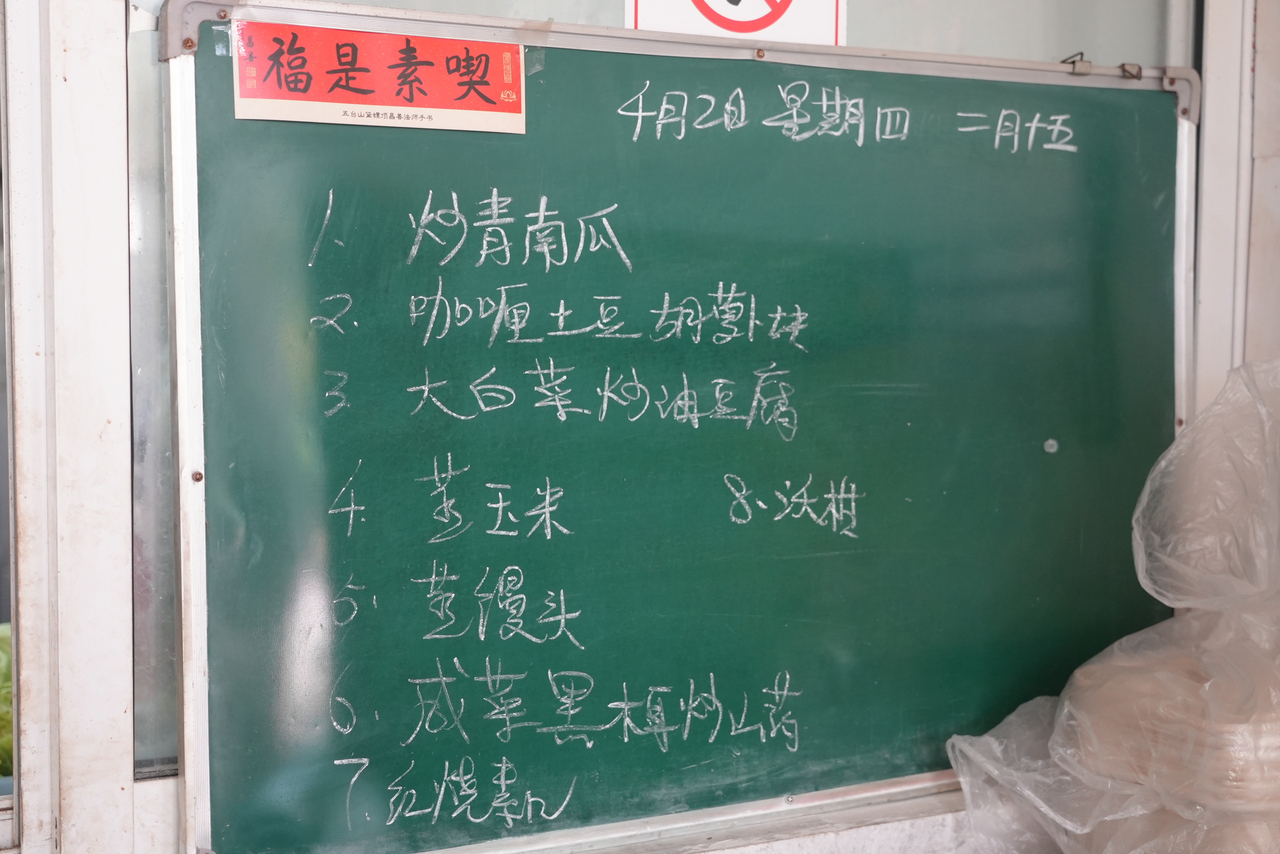 喫素是福
五台山黛螺顶昌善法师手书
4月2日 星期四 二月十五
1、炒青南瓜
2、咖喱土豆胡萝卜块
3、大白菜炒油豆腐
4、蒸玉米 8、沃柑
5、蒸馒头
6、咸菜黑木耳炒山药
7、红烧素几